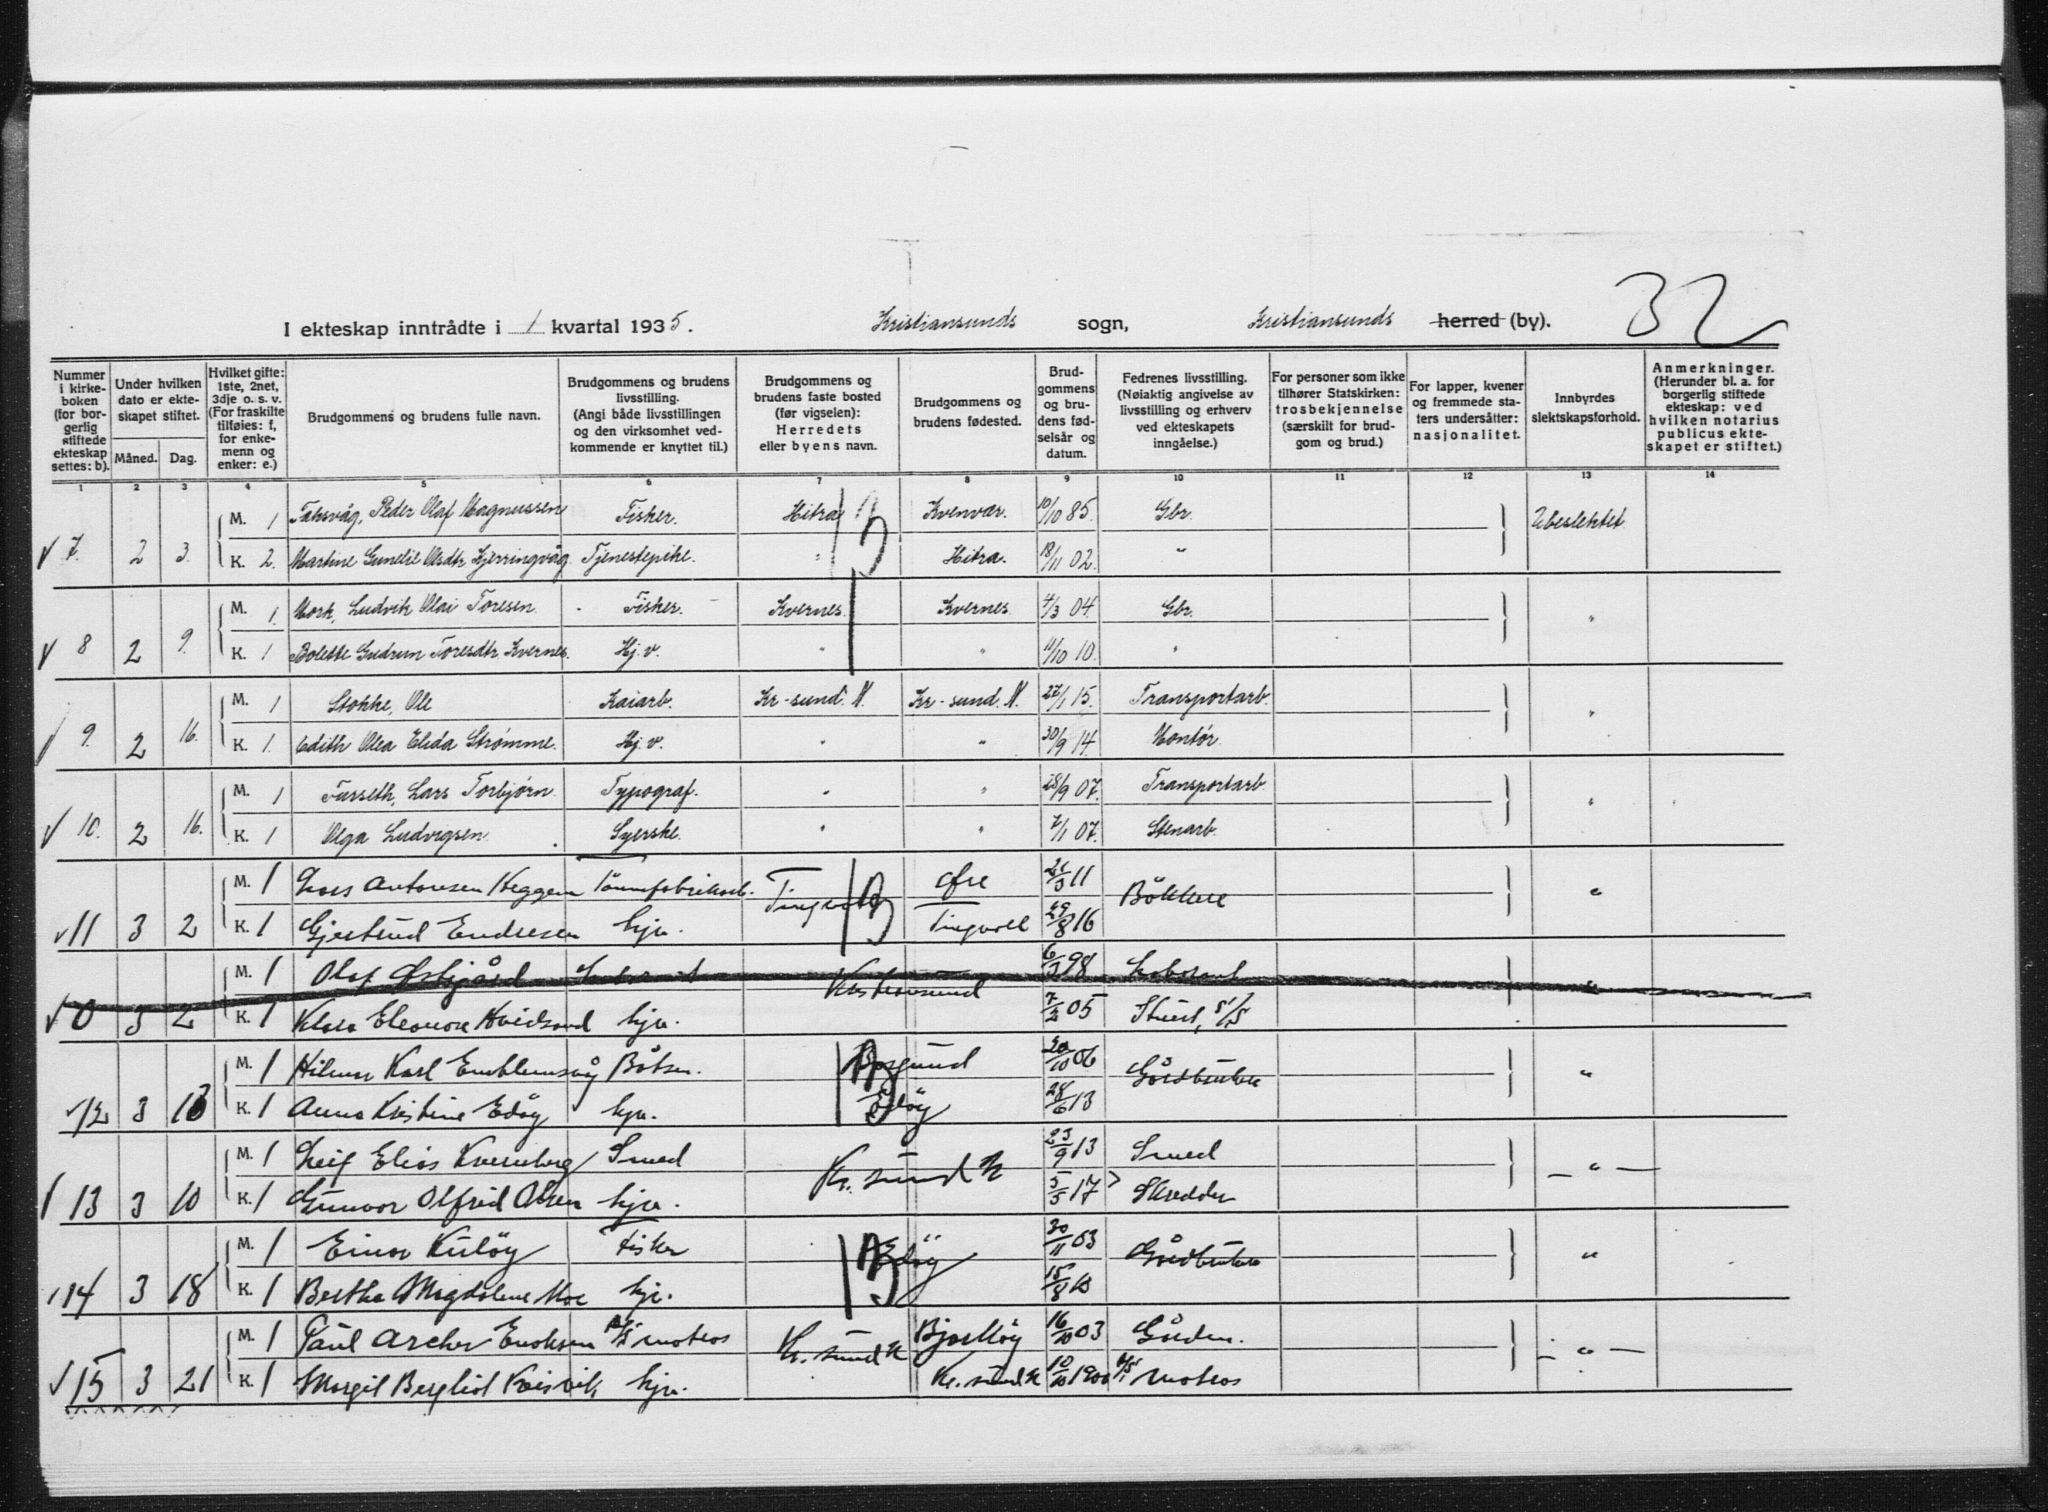 32
I ekteskap inntrådte i 1 kvartal 1935. Kristiansunds sogn, Kristiansunds herred (by).
Nummer i kirkeboken (for borgerlig stiftede ekteskap settes: b).
Under hvilken dato er ekteskapet stiftet.
Måned. Dag.
Hvilket gifte: 1ste, 2net, 3dje o. s. v. (For fraskilte tilføies: f, for enkemenn og enker: e.)
Brudgommens og brudens fulle navn.
Brudgommens og brudens livsstilling. (Angi både livsstillingen og den virksomhet vedkommende er knyttet til.)
Brudgommens og brudens faste bosted (før vigselen): Herredets eller byens navn.
Brudgommens og brudens fødested.
Brudgommens og brudens fødselsår og datum.
Fedrenes livsstilling. (Nøiaktig angivelse av livsstilling og erhverv ved ekteskapets inngåelse.)
For personer som ikke tilhører Statskirken: trosbekjennelse (særskilt for brudgom og brud.)
For lapper, kvener og fremmede staters undersåtter: nasjonalitet.
Innbyrdes slektskapsforhold.
Anmerkninger. (Herunder bl. a. for borgerlig stiftede ekteskap: ved hvilken notarius publicus ekteskapet er stiftet.)
1 2 3 4 5 6 7 8 9 10 11 12 13 14
M. 1 Taksvåg, Peder Olaf Magnussen Fisker. Hitra Kvenvær. 10/10 85. Gbr. Ubeslektet
7. 2 3. K. 2. Martine Gundie Olsdtr Hjerringvåg. Tjenestepike. " Hitra. 18/11 02. "
M. 1. Mork, Ludvik Olai Toresen. Fisker. Kvernes Kvernes 4/3 04. Gbr. "
8 2 9. K. 1 Bolette Gudrun Toresdtr. Kvernes. Hj. v. " " 11/10 10. "
M. 1 Stokke, Ole Kaiarb. Kr-sund. N. Kr-sund. N. 27/1 15. Transportarb. "
9. 2 16. K. 1. Edith Olea Elida Strømme. Hj. v. " " 30/9 14. Montør.
M. 1 Fusseth, Lars Torbjørn. Typograf. " " 28/9 07. Transportarb. "
10. 2 16. K. 1 Olga Ludvigsen. Syerske. " " 7/1 07. Stenarb.
M. 1 Lars Antonsen Heggem Tönnefabrikarb. Tingvoll Øre 11 Bökker "
11 3 2 K. 1 Gjertrud Endresen hjv. Tingvoll 29/8 16
M. 1 Olaf Østgård Kristiansund 98 "
0 3 2 K. 1 Klara Eleonora Hvidsand hjv. 7/2 05 Stuert,
M. 1 Hilmar Karl Emblemsvåg Båtsm. Borgund 20/10 06 Gårdbruker "
12 3 10 K. 1 Anna Kristine Edöy hjv. Edöy 28/6 13
M. 1 Leif Elias Kvernberg Smed Kr. sund N 23/9 13 Smed "
13 3 10 K. 1 Gunvor Alfrid Olsen hjv. 5/5 17 Skredder
M. 1 Einar Kulöy Fisker Edöy 30/11 03 Gårdbruker "
14 3 18 K. 1 Bertha Magdalene Moe hjv. 15/8
M. 1 Paul Archer Enoksen matros Kr. sund N Bjarköy 16/10 03 Gårdbr. "
15 3 21 K. 1 Margit Bergliot Kvisvik hjv. Kr. sund N 10/10 1900 matros